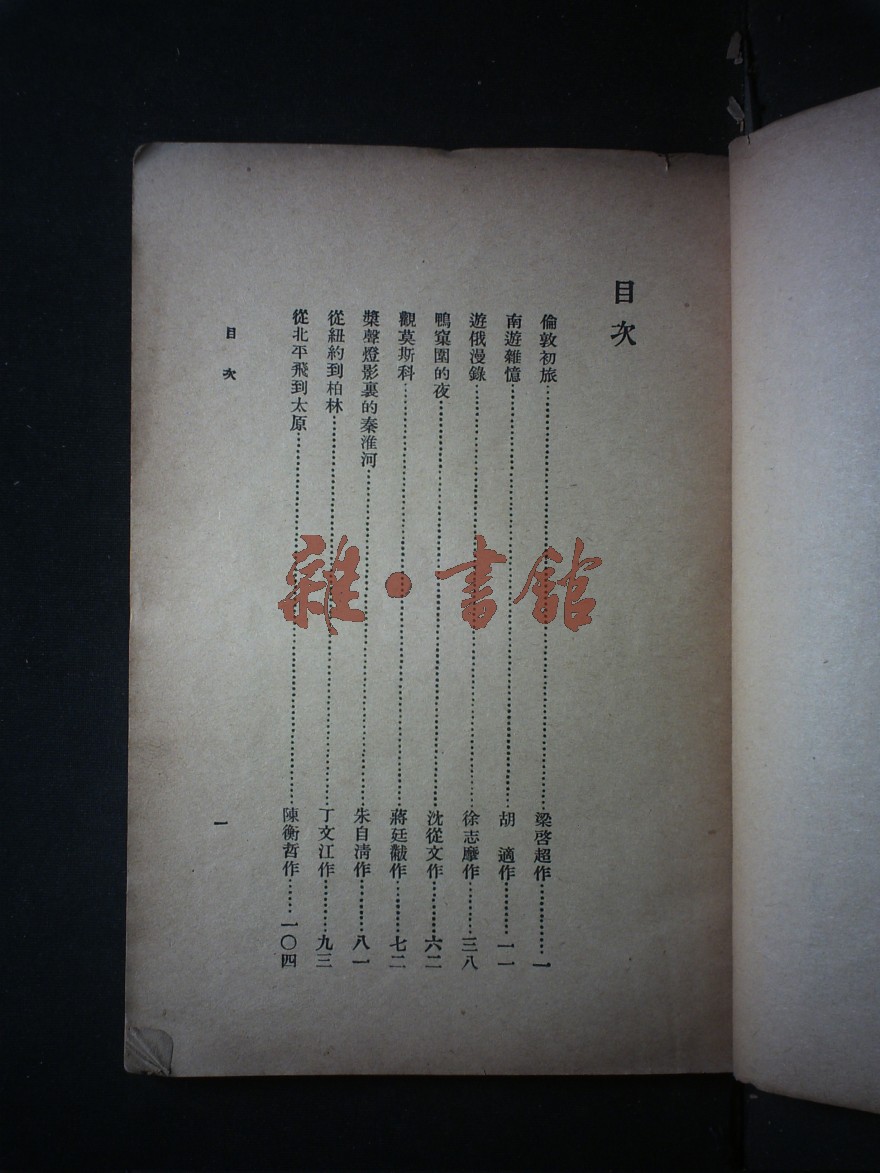 目次
倫敦初旅……梁啓超作……一
南遊雜憶……胡適作……一一
遊俄漫錄……徐志摩作……三八
鴨窠圍的夜……沈從文作……六二
觀莫斯科……蔣廷黻作……七二
槳聲燈影裏的秦淮河……朱自清作……八一
從紐約到柏林……丁文江作……九三
從北平飛到太原……陳衡哲作……一〇四
目次
一
雜·書館